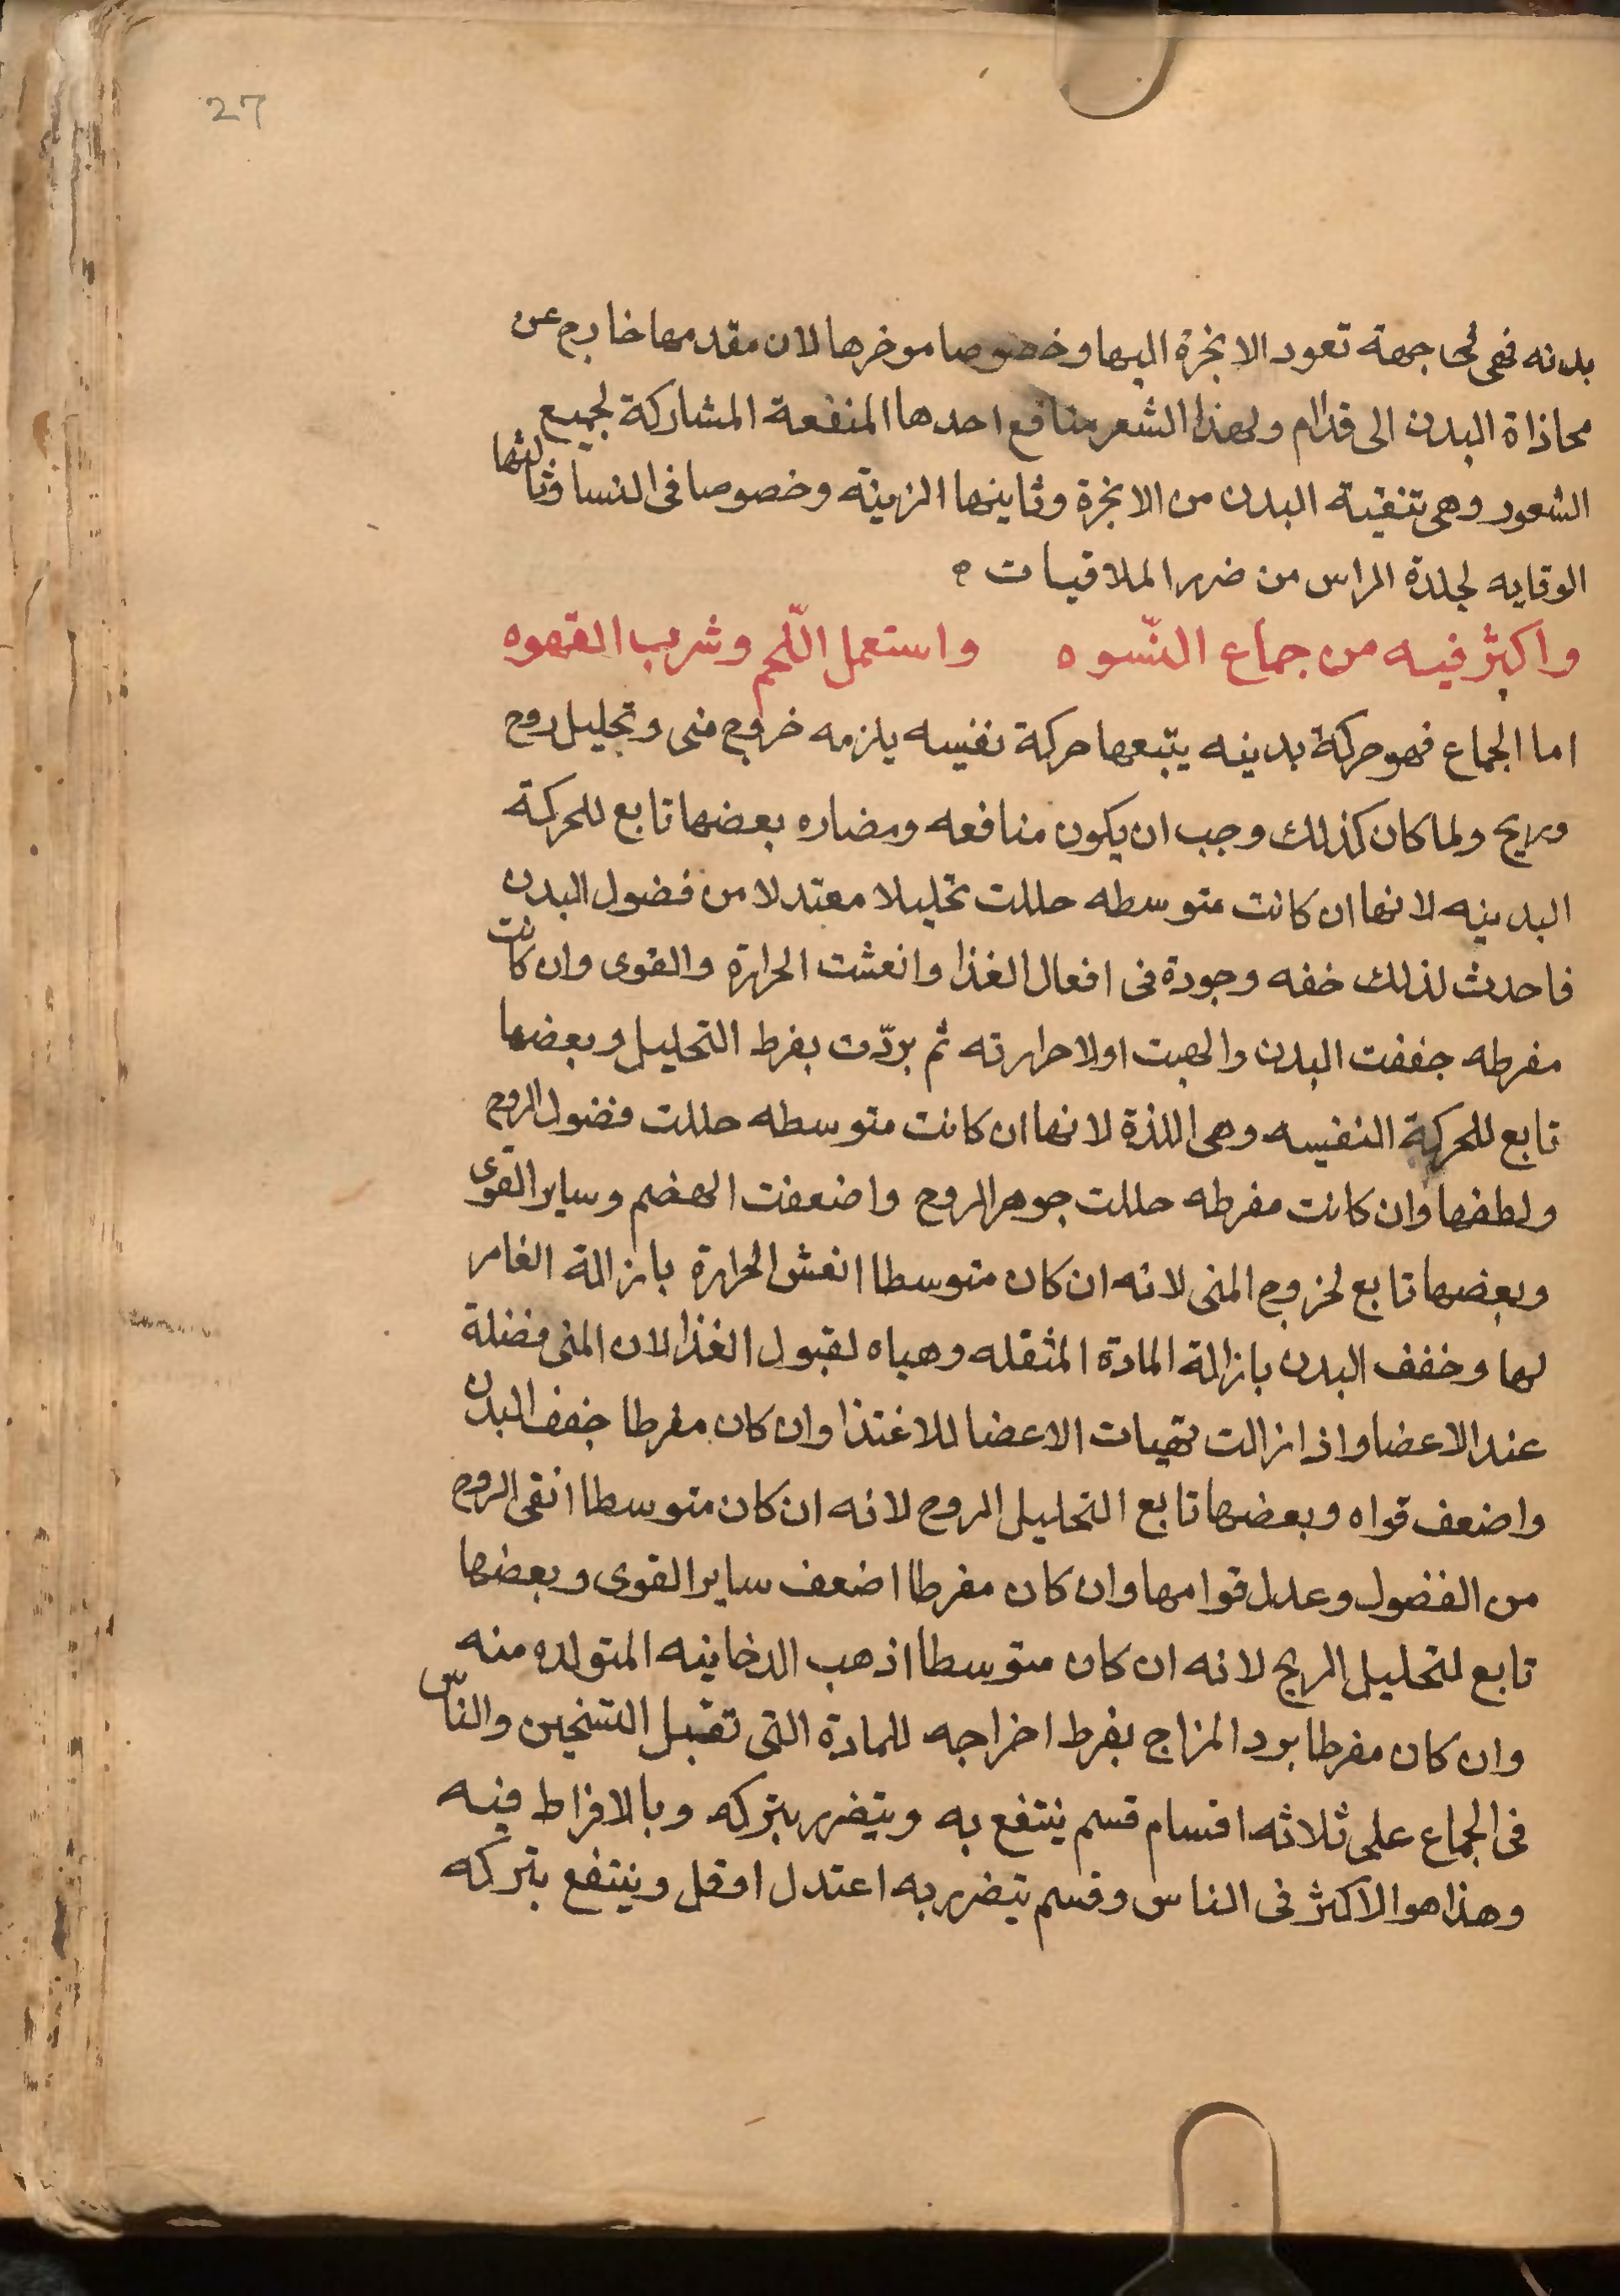 27
بدنه فهى فى جهة تعود الابخرة اليها وخصوصا موخرها لان مقدمها خارج عن
محاذاة البدن الى قدام ولهذا الشعر منافع احدها المنفعة المشاركة لجميع
الشعور وهى تنقية البدن من الابخرة وثاينها الزينة وخصوصا فى النسا وثالثها
الوقايه لجلدة الراس من ضرر الملاقيات ه
واكثر فيه من جماع النّسوه واستعمل اللّحم وشرب القهوه
اما الجماع فهو حركة بدينه يتبعها حركة نفيسه يلزمه خروج منى وتحليل روح
وريح ولما كان كذلك وجب ان يكون منافعه ومضاره بعضها تابع للحركة
البدينه لانها ان كانت متوسطه حللت تحليلا معتدلا من فضول البدن
فاحدث لذلك خفه وجودة فى افعال الغذا وانعشت الحرارة والقوى وان كانت
مفرطه جففت البدن والهبت اولا حرارته ثم بردّت بفرط التحليل وبعضها
تابع للحركة النفيسه وهى اللذة لانها ان كانت متوسطه حللت فضول الروح
ولطفها وان كانت مفرطه حللت جوهر الروح واضعفت الهضم وساير القوى
وبعضها تابع لخروج المنى لانه ان كان متوسطا انعش الحرارة بازالة الغامر
لها وخفف البدن بازالة المادة المثقله وهياه لقبول الغذا لان المنى فضلة
عند الاعضا واذا زالت تهيات الاعضا للاغتذا وان كان مفرطا جفف البدن
واضعف قواه وبعضها تابع التحليل الروح لانه ان كان متوسطا انقى الروح
من الفضول وعدل قوامها وان كان مفرطا اضعف ساير القوى وبعضها
تابع لتحليل الريح لانه ان كان متوسطا اذهب الدخاينه المتولده منه
وان كان مفرطا برد المزاج بفرط اخراجه للمادة التى تقبل التسخين والنّاس
فى الجماع على ثلاثه اقسام قسم ينتفع به ويتضرر بتركه وبالافراط فيه
وهذا هو الاكثر فى الناس وقسم يتضرر به اعتدل او قل وينتفع بتركه